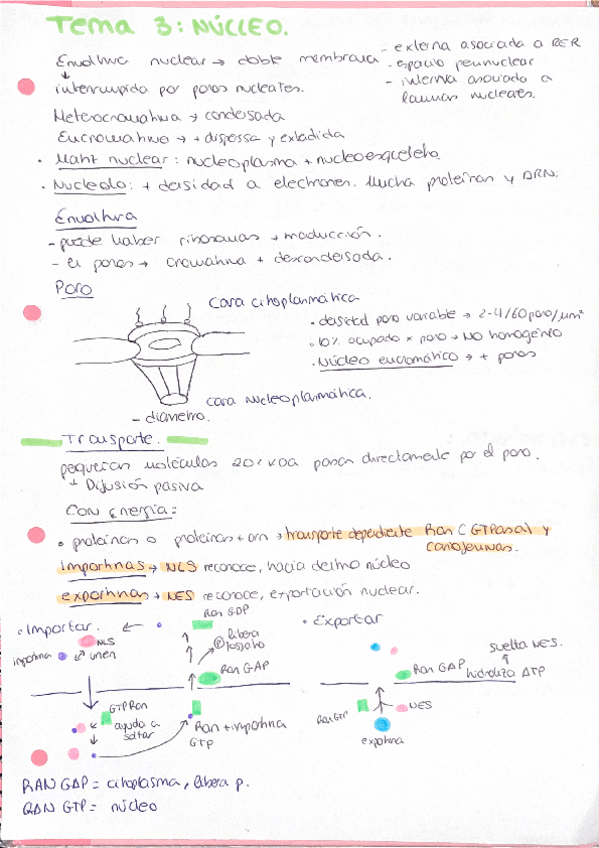 Tema 3: NÚCLEO.
Envoltura nuclear → doble membrana - externa asociada a RER
- espacio perinuclear
- interna asociada a láminas nucleares.
↓ interrumpida por poros nucleares.
Heterocromatina → condensada
Eucromatina → + dispersa y extendida
· Matriz nuclear: nucleoplasma + nucleoesqueleto.
· Nucleolo: + densidad a electrones. Mucha proteínas y ARN.
Envoltura
- puede haber ribosomas → traducción.
- en poros → cromatina + descondensada.
Poro
cara citoplasmática
· densidad poro variable → 2-4/60 poro/μm²
· 10% ocupado x poro → NO homogénio
· Núcleo eucromático → + poros
cara nucleoplasmática.
- diametro.
Transporte.
pequeñas moléculas 20/ KDa pasan directamente por el poro.
↳ Difusión pasiva
Con Energía:
· proteínas o proteínas + arn → transporte dependiente Ran (GTPasa) y carioferinas.
importinas → NLS reconoce, hacia dentro núcleo
exportinas → NES reconoce, exportación nuclear.
· Importar.
NLS
importina
unen
GTP Ran
ayuda a soltar
Ran + importina
GTP
Ran GAP
libera fosfato
Ran GDP
· Exportar
suelta NES.
Ran GAP hidroliza ATP
Ran GTP
NES
exportina
RAN GAP = citoplasma, libera p.
RAN GTP = núcleo